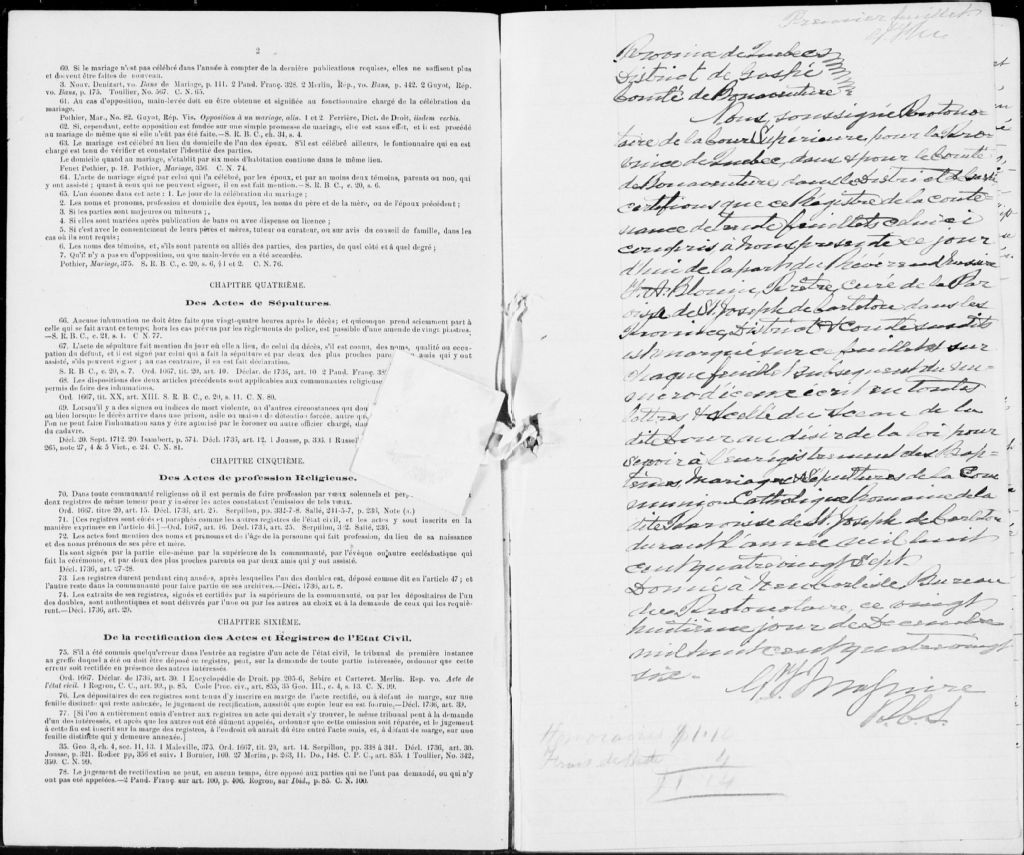 2
60. Si le mariage n'est pas célébré dans l'année à compter de la dernière publications requises, elles ne suffisent plus
et doivent être faites de nouveau.
3. Nouv. Denizart, vo. Bans de Mariage, p. 111. 2 Pand. Franç. 328. 2 Merlin, Rép., vo. Bans, p. 442. 2 Guyot, Rép.
vo. Bans, p. 175. Toullier, No. 567. C. N. 65.
61. Au cas d'opposition, main-levée doit en être obtenue et signifiée au fonctionnaire chargé de la célébration du
mariage.
Pothier, Mar., No. 82. Guyot, Rép. Vis. Opposition à un mariage, alis. 1 et 2. Ferrière, Dict. de Droit, iisdem verbis.
62. Si, cependant, cette opposition est fondée sur une simple promesse de mariage, elle est sans effet, et il est procédé
au mariage de même que si elle n'eût pas été faite.—S. R. B. C., ch. 34, s. 4.
63. Le mariage est célébré au lieu du domicile de l'un des époux. S'il est célébré ailleurs, le fontionnaire qui en est
chargé est tenu de vérifier et constater l'identité des parties.
Le domicile quand au mariage, s'établit par six mois d'habitation continue dans le même lieu.
Fenet Pothier, p. 18. Pothier, Mariage, 356. C. N. 74.
64. L'acte de mariage signé par celui qui l'a célébré, par les époux, et par au moins deux témoins, parents ou non, qui
y ont assisté ; quant à ceux qui ne peuvent signer, il en est fait mention.—S. R. B. C., c. 20, s. 6.
65. L'on énonce dans cet acte : 1. Le jour de la célébration du mariage ;
2. Les noms et pronoms, profession et domicile des époux, les noms du père et de la mère, ou de l'époux précédent ;
3. Si les parties sont majeures ou mineures ;
4. Si elles sont mariées après publication de bans ou avec dispense ou licence ;
5. Si c'est avec le consentement de leurs pères et mères, tuteur ou curateur, ou sur avis du conseil de famille, dans les
cas où ils sont requis ;
6. Les noms des témoins, et, s'ils sont parents ou alliés des parties, des parties, de quel côté et à quel degré ;
7. Qu'il n'y a pas eu d'opposition, ou que main-levée en a été accordée.
Pothier, Mariage, 375. S. R. B. C., c. 20, s. 6, §1 et 2. C. N. 76.
CHAPITRE QUATRIÈME.
Des Actes de Sépultures.
66. Aucune inhumation ne doit être faite que vingt-quatre heures après le décès ; et quiconque prend sciemment part à
celle qui se fait avant ce temps, hors les cas prévus par les règlements de police, est passible d'une amende de vingt piastres.
—S. R. B. C., c. 21, s. 1. C. N. 77.
67. L'acte de sépulture fait mention du jour où elle a lieu, de celui du décès, s'il est connu, des noms, qualité ou occu-
pation du défunt, et il est signé par celui qui a fait la sépulture et par deux des plus proches parents amis qui y ont
assisté, s'ils peuvent signer ; au cas contraire, il en est fait déclaration.
S. R. B. C., c. 20, s. 7. Ord. 1667, tit. 20, art. 10. Déclar. de 1736, art. 10. 2 Pand. Franç.
68. Les dispositions des deux articles précédents sont applicables aux communautés religieuses
permis de faire des inhumations.
Ord. 1667, tit. XX, art. XIII. S. R. B. C., c. 20, s. 11. C. N. 80.
69. Lorsqu'il y a des signes ou indices de mort violente, ou d'autres circonstances qui
ou bien lorsque le décès arrive dans une prison, asile ou maison de détention forcée, autre que
l'on ne peut faire l'inhumation sans y être aptorisé par le coroner ou autre officier chargé, dans
du cadavre.
Décl. 20. Sept. 1712. 20. Isambert, p. 574. Décl. 1736, art. 12. 1 Jousse, p. 303. 1 Russel
265, note 27, 4 & 5 Vict., c. 24. C. N. 81.
CHAPITRE CINQUIÈME.
Des Actes de profession Religieuse.
70. Dans toute communauté religieuse où il est permis de faire profession par vœux solennels et
deux registres de même teneur pour y insérer les actes constatant l'émission de tels vœux.
Ord. 1667, titre 20, art. 15. Décl. 1736, art. 25. Serpillon, pp. 332-7-8. Sallé, 234-5-7, p. 236, Note (a.)
71. [Ces registres sont côtés et paraphés comme les autres registres de l'état civil, et les actes y sont inscrits en la
manière exprimée en l'article 46.]—Ord. 1667, art. 16. Décl. 1736, art. 25. Serpillon, 342. Sallé, 236.
72. Les actes font mention des noms et prénoms et de l'âge de la personne qui fait profession, du lieu de sa naissance
et des noms prénoms de ses père et mère.
Ils sont signés par la partie elle-même par la supérieure de la communauté, par l'évêque ou autre ecclésiastique qui
fait la cérémonie, et par deux des plus proches parents ou par deux amis qui y ont assisté.
Décl. 1736, art. 27-28.
73. Les registres durent pendant cinq années, après lesquelles l'un des doubles est, déposé comme dit en l'article 47 ; et
l'autre reste dans la communauté pour faire partie de ses archives.—Décl. 1736, art. 8.
74. Les extraits de ses registres, signés et certifiés par la supérieure de la communauté, ou par les dépositaires de l'un
des doubles, sont authentiques et sont délivrés par l'une ou par les autres au choix et à la demande de ceux qui les requiè-
rent.—Décl. 1736, art. 29.
CHAPITRE SIXIÈME.
De la rectification des Actes et Registres de l'Etat Civil.
75. S'il a été commis quelqu'erreur dans l'entrée au registre d'un acte de l'état civil, le tribunal de première instance
au greffe duquel a été ou doit être déposé ce registre, peut, sur la demande de toute partie intéressée, ordonner que cette
erreur soit rectifiée en présence des autres intéressés.
Ord. 1667. Déclar. de 1736, art. 30. 1 Encyclopédie de Droit, pp. 205-6, Sebire et Carteret. Merlin. Rep. vo. Acte de
l'état civil. 1 Rogron, C. C., art. 99., p. 85. Code Proc. civ., art. 855, 35 Geo. III., c. 4, s. 13. C. N. 99.
76. Les dépositaires de ces registres sont tenus d'y inscrire en marge de l'acte rectifié, ou à défaut de marge, sur une
feuille distincte qui reste annexée, le jugement de rectification, aussitôt que copie leur en est fournie.—Décl. 1736, art. 30.
77. [Si l'on a entièrement omis d'entrer aux registres un acte qui devait s'y trouver, le même tribunal peut à la demande
d'un des intéressés, et après que les autres ont été dûment appelés, ordonner que cette omission soit réparée, et le jugement
à cette fin est inscrit sur la marge des registres, à l'endroit où aurait dû être entré l'acte omis, et, à défaut de marge, sur une
feuille distincte qui y demeure annexée.]
35. Geo. 3, ch. 4, sec. 11, 13. 1 Maleville, 375. Ord. 1667, tit. 20, art. 14. Serpillon, pp. 338 à 341. Décl. 1736, art. 30.
Jousse, p. 321. Rodier pp, 356 et suiv. 1 Bornier, 160. 27 Merlin, p. 263, 11. Do., 148. C. P. C., art. 855. 1 Toullier, No. 342,
350. C. N. 99.
78. Le jugement de rectification ne peut, en aucun temps, être opposé aux parties qui ne l'ont pas demandé, ou qui n'y
ont pas été appelées.—2 Pand. Franç. sur art. 100, p. 406. Rogron, sur Ibid., p. 85. C. N. 100.
Premier feuillet.
Province de Quebec
District de Gaspé
Comté de Bonaventure
Nous, soussigné Protono-
taire de la Cour Supérieure, pour la Pro-
vince de Quebec, dans & pour le Comté
de Bonaventure, dans le District de Gaspé
certifions que ce Régistre de la conte-
nance de trente feuillets celui ci
compris à nous présenté ce jour
d'hui de la part du Révérend Messire
J. A. Blouin, Prêtre, Curé de la Par
oisse de St. Joseph de Carleton dans les
Province, District & Comté susdits
est marqué sur ce feuillet & sur
chaque feuillet subsequent du nu-
mero d'icelui écrit en toutes
lettres & scellé du sceau de la
dite Cour au désir de la loi pour
servir à l'enrégistrement des Bap-
têmes Mariages & Sépultures de la Com
munion Catholique Romaine de la
dite Paroisse de St. Joseph de Carleton
durant l'année mil huit
cent quatre vingt sept.
Donné à New Carlisle Bureau
du Protonotaire, ce vingt
huitième jour de Decembre
mil huit cent quatre vingt
six.
Maguire
P.C.S.